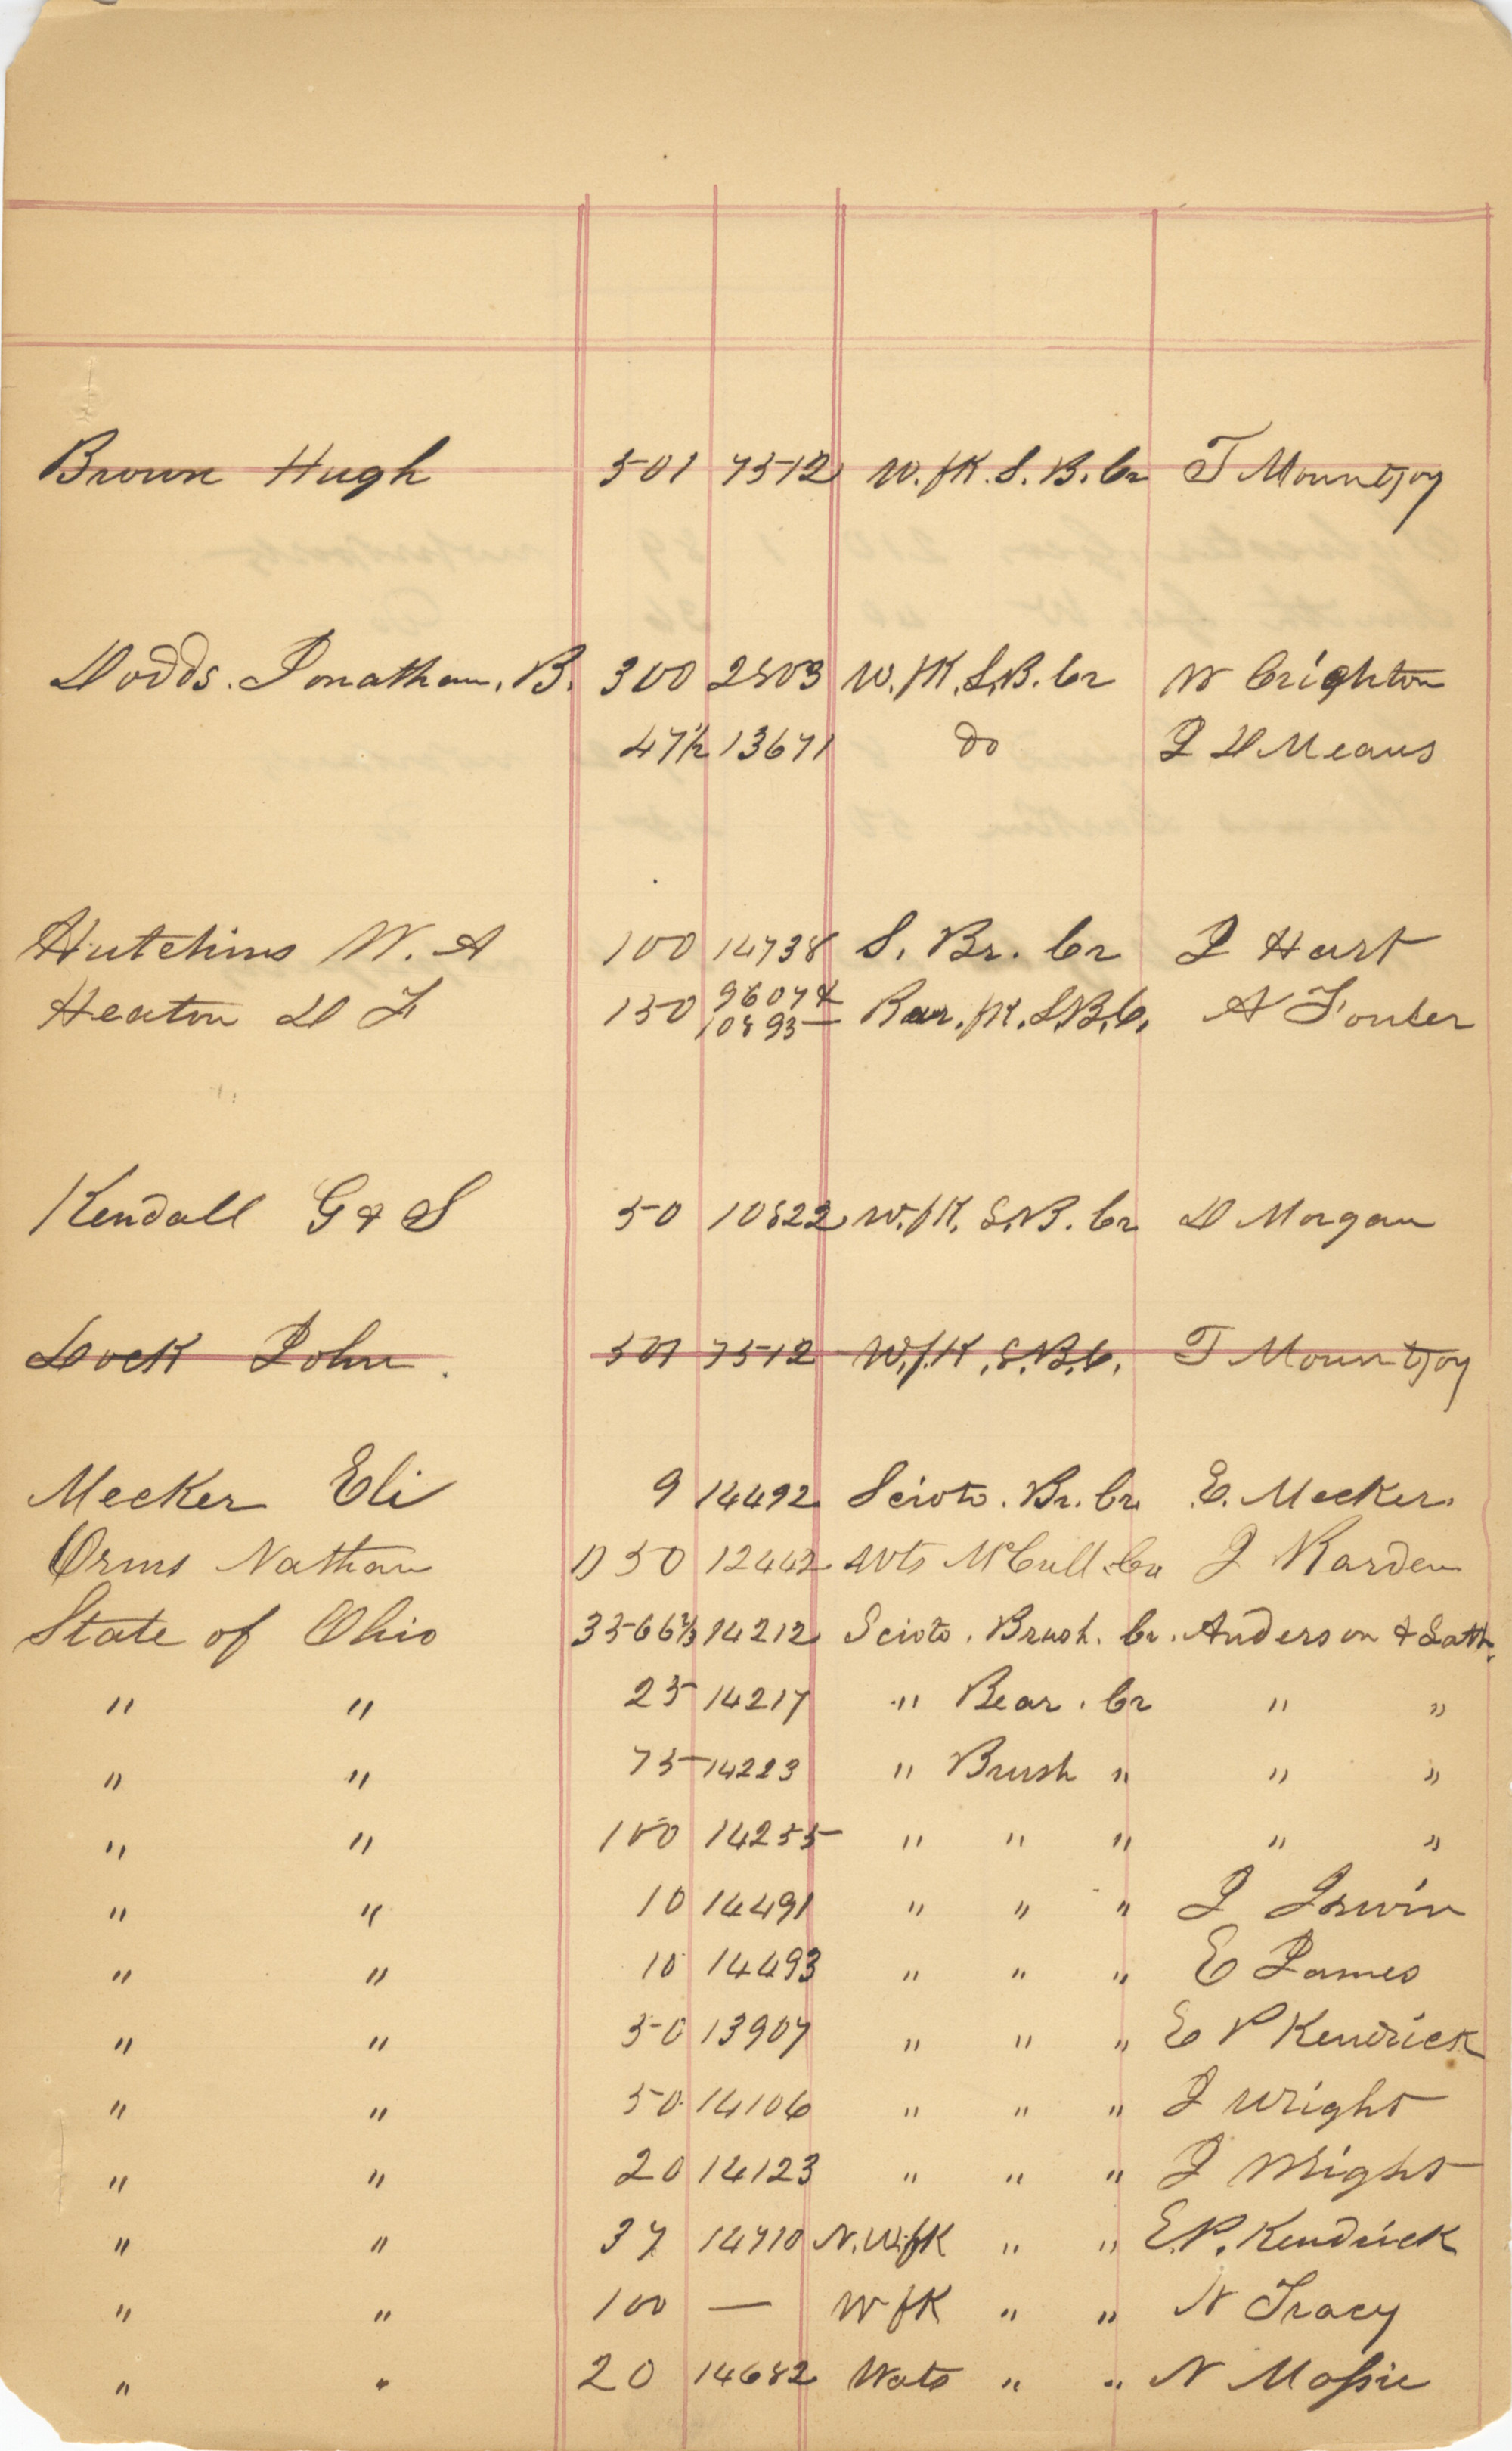 Brown Hugh 501 7512 W. fK. S. B. Cr T Mountjoy
Dodds. Jonathan. B. 300 2803 W. fK. S. B. Cr W Crighton
47½ 13671 do J D Means
Hutchins W. A 100 14738 S. Br. Cr J Hart
Heaton D F 150 9607 & 10893 — Bear. fK. S. B. C. A Fouler
Kendall G & S 50 10822 W. fK. S. B. Cr D Morgan
Lock John. 501 7512 W. f. K. S. B. C. T Mountjoy
Meeker Eli 9 14492 Scioto. Br. Cr E. Meeker.
Orms Nathan 50 12442 Wts McCull. Cr J Rarden
State of Ohio 3566⅔ 14212 Scioto. Brush. Cr. Anderson & Lath.
" " 25 14217 " Bear. Cr " "
" " 75 14223 " Brush " " "
" " 100 14255 " " " " "
" " 10 14491 " " " J Irwin
" " 10 14493 " " " E James
" " 50 13907 " " " E P Kendrick
" " 50 14106 " " " J Wright
" " 20 14123 " " " J Wright
" " 37 14710 N. W. fK " " E. P. Kendrick
" " 100 — W fK " " N Tracy
" " 20 14682 Wats " " N Massie